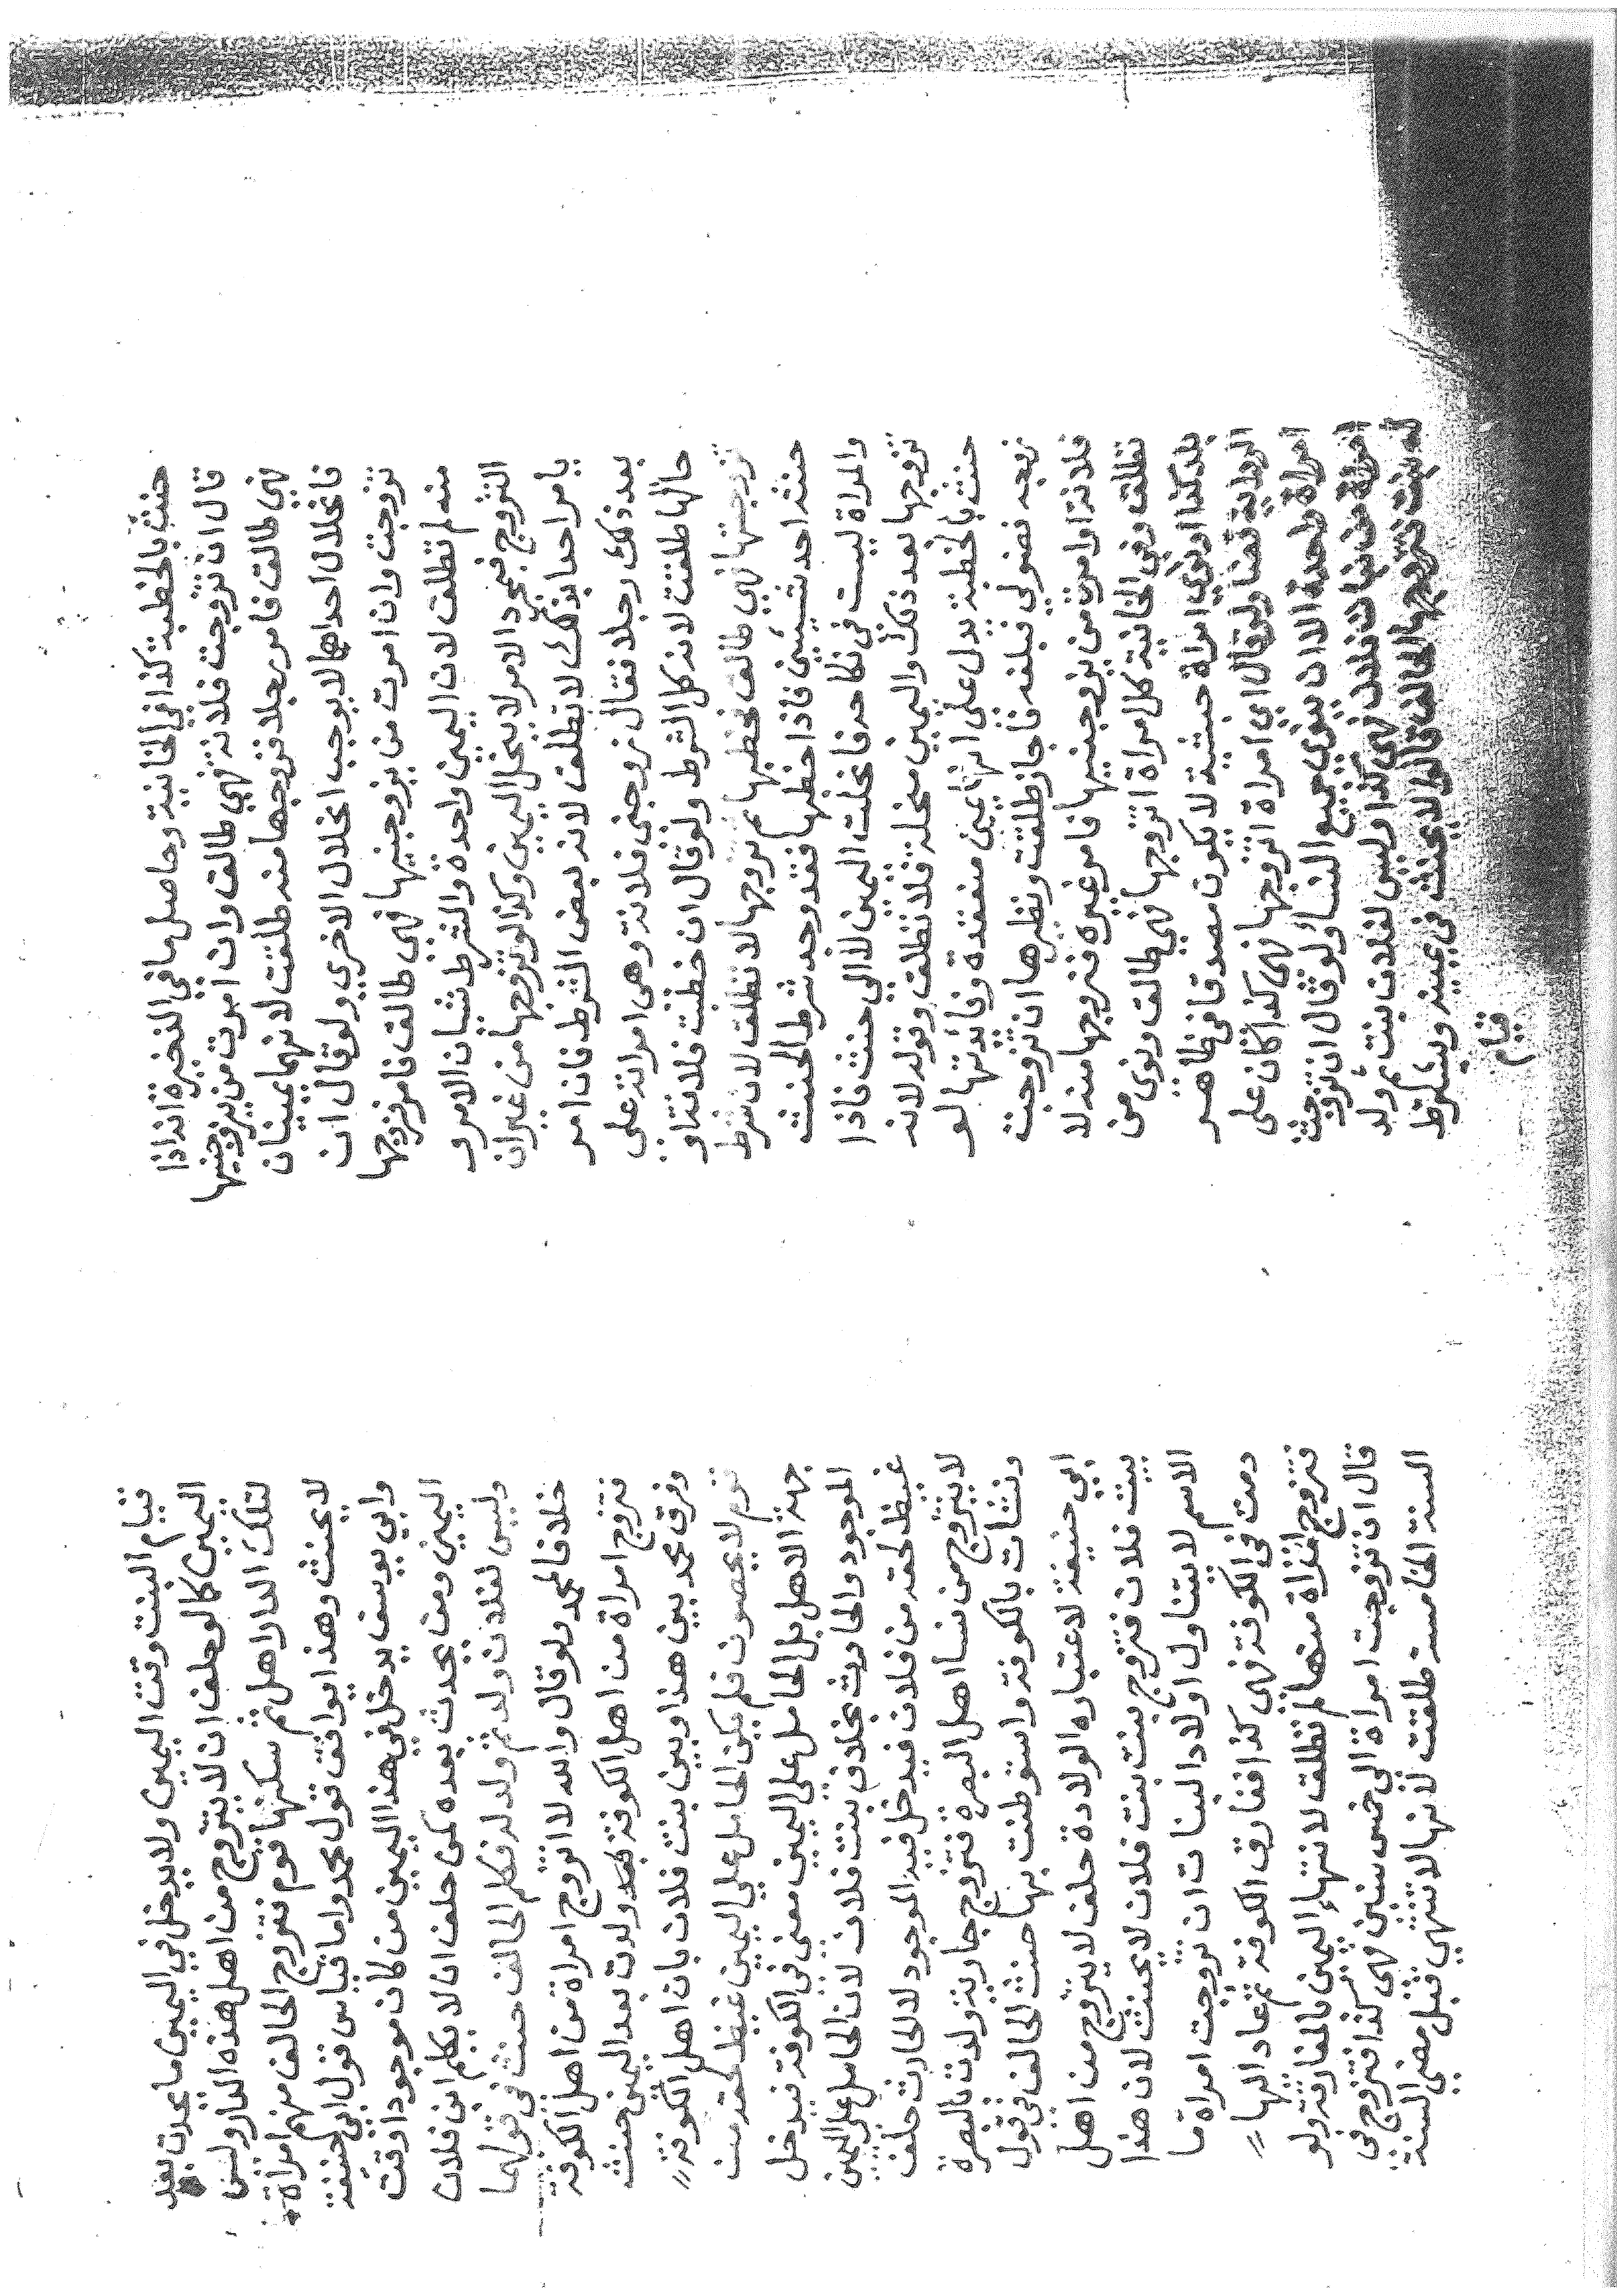 حنث بالخطبة كذا في الخانية وحاصل ما في الذخيرة انه اذا
قال ان تزوجت فلانة فهي طالق وان امرت من يزوجنيها
فهي طالق فامر رجلا فزوجها منه طلقت لانهما يمينان
فانحلال احداهما لا يوجب انحلال الاخرى ولو قال ان
تزوجت وان امرت من يزوجنيها فهي طالق فامر فزوجها
منه لم تطلق لان اليمين واحدة والشرط شيئان الامر و
التزوج فبمجرد الامر لا ينحل اليمين وكذا لو تزوجها من غير ان
يامر احدا بذلك لا تطلق لانه بعض الشرط فان امر
بعد ذلك رجلا فقال زوجني فلانة وهي امراته على
حالها طلقت لانه كمل الشرط ولو قال ان خطبت فلانة او
تزوجتها فهي طالق فخطبها ثم تزوجها لا تطلق لان شرط
حنثه احد شيئين فاذا خطبها فقد وجد شرط الحنث
والمراة ليست في نكاحه فانحلت اليمين لا الى حنث فاذا
تزوجها بعد ذلك واليمين منحلة فلا تطلق وقوله لانه
حنث بالخطبة يدل على ان اليمين منعقدة وفائدتها لو
زوجه فضولي فبلغه فاجاز طلقت ونظيرها ان تزوجت
فلانة او امرت من يزوجنيها فامر غيره فتزوجها منه لا
تطلق وفي الخانية كل امراة اتزوجها فهي طالق ونوى من
بلد كذا او نوى امراة حبشية لا يكون مصدقا في ظاهر
الرواية قضا ولو قال اي امراة اتزوجها فهي كذا كان على
امراة واحدة الا ان ينوي جميع النسا ولو قال ان تزوجت
امراة من بنات فلان فهي كذا وليس لفلان بنت ثم ولد
له بنت فتزوجها الحالف قالوا لا يحنث في يمينه ويشترط
قيام
قيام البنت وقت اليمين ولا يدخل في اليمين ما يحدث بعد
اليمين كما لو حلف ان لا يتزوج من اهل هذه الدار وليس
لتلك الدار اهل ثم سكنها قوم فتزوج الحالف منهم امراة
لا يحنث وهذا يوافق قول محمد واما قياس قول ابي حنيفة
وابي يوسف يدخل في هذا اليمين من كان موجودا وقت
اليمين ومن يحدث بعده كمن حلف ان لا يكلم ابن فلان
وليس لفلان ولد ثم ولد له فكلم الحالف حنث في قولهما
خلافا لمحمد ولو قال والله لا اتزوج امراة من اهل الكوفة
فتزوج امراة من اهل الكوفة ولدت بعد اليمين حنث
وفرق محمد بين هذا وبين بنت فلان بان اهل الكوفة
قوم لا يحصون فلم يكن الحامل على اليمين غيظ لحقه من
جهة الاهل بل الحامل على اليمين معنى في الكوفة فيدخل
الموجود والحادث بخلاف بنت فلان لان الحامل على اليمين
غيظ لحقه من فلان فيدخل فيه الموجود لا الحادث حلف
لا يتزوج من نسا اهل البصرة فتزوج جارية ولدت بالبصرة
ونشات بالكوفة واستوطنت بها حنث الحالف في قول
ابي حنيفة لاعتباره الولادة حلف لا يتزوج من اهل
بيت فلان فتزوج بنت بنت فلان لا يحنث لان هذا
الاسم لا يتناول اولاد البنات ان تزوجت امراة ما
دمت في الكوفة فهي كذا ففارق الكوفة ثم عاد اليها
فتزوج امراة منها لم تطلق لانتهاء اليمين بالمفارقة ولو
قال ان تزوجت امراة الى خمس سنين فهي كذا فتزوج في
السنة الخامسة طلقت لانها لا تنتهي قبل مضي السنة